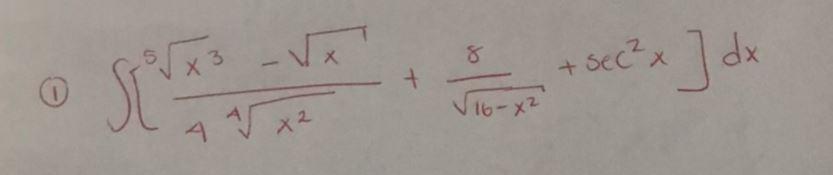 ① ∫[ (⁵√x³ - √x) / (4 ⁴√x²) + 8 / √(16-x²) + sec²x ] dx